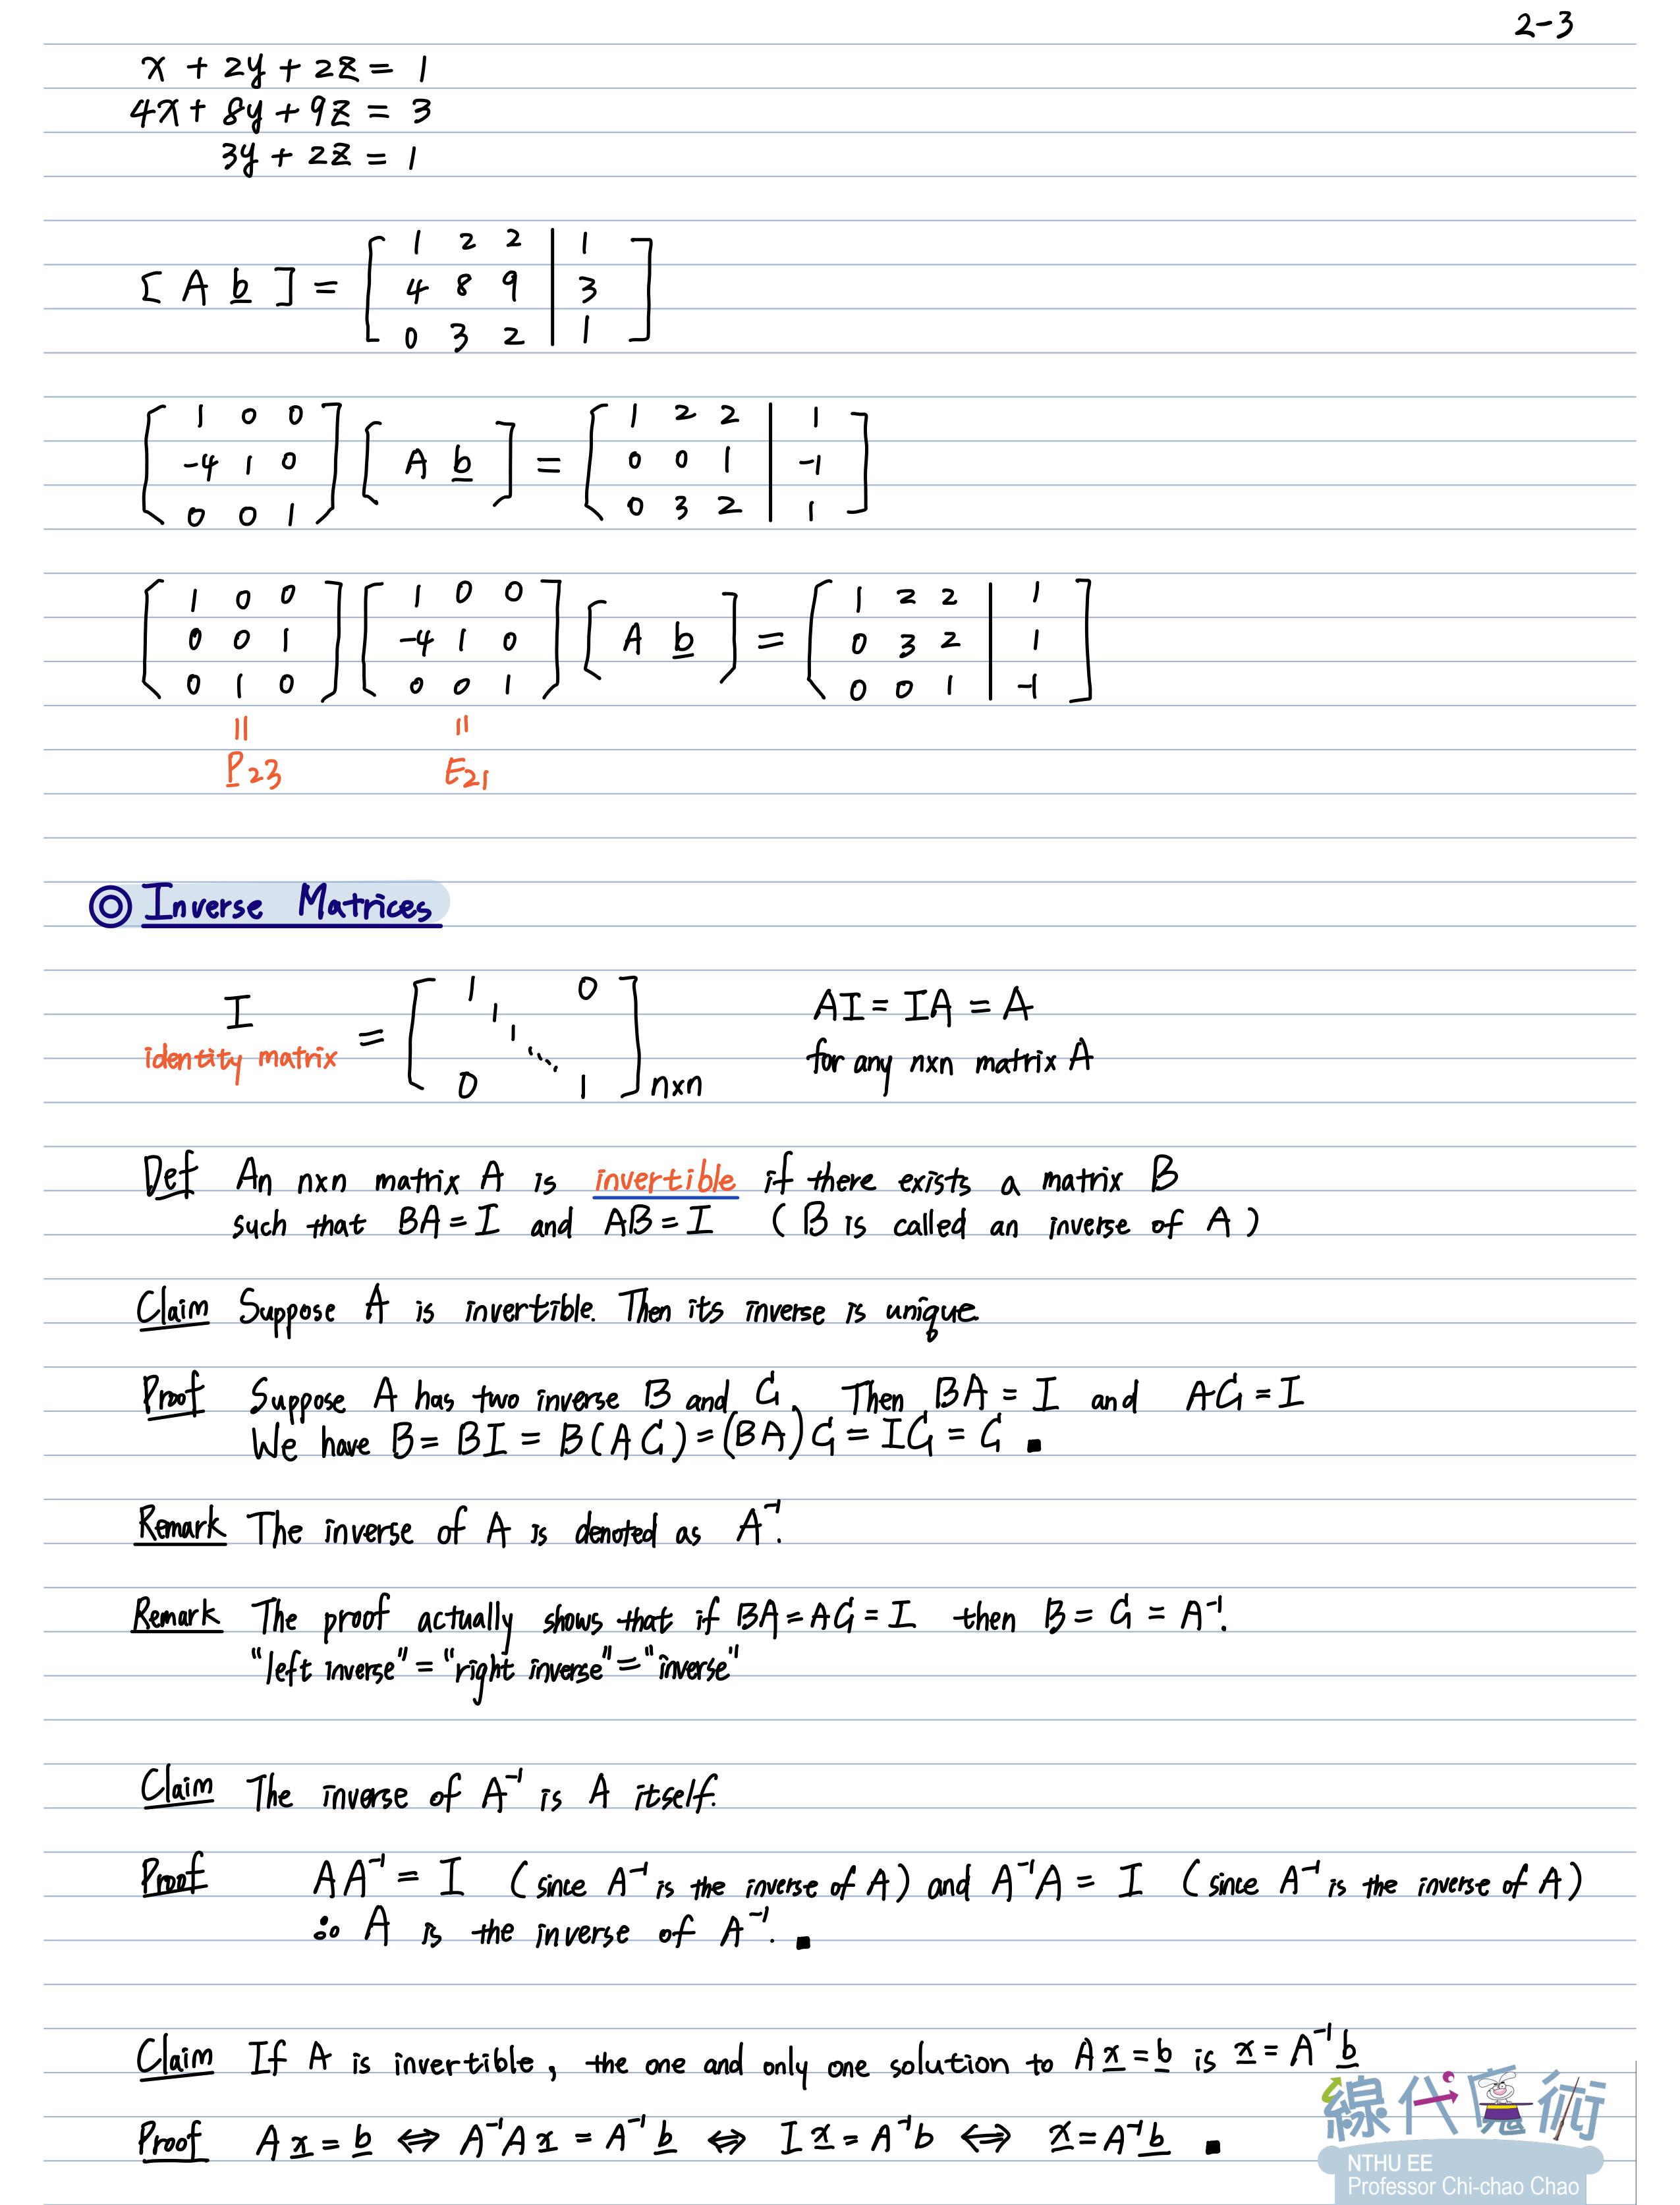 2-3
x + 2y + 2z = 1
4x + 8y + 9z = 3
3y + 2z = 1
[ A b ] = [ 1 2 2 | 1
4 8 9 | 3
0 3 2 | 1 ]
[ 1 0 0
-4 1 0
0 0 1 ] [ A b ] = [ 1 2 2 | 1
0 0 1 | -1
0 3 2 | 1 ]
[ 1 0 0
0 0 1
0 1 0 ] [ 1 0 0
-4 1 0
0 0 1 ] [ A b ] = [ 1 2 2 | 1
0 3 2 | 1
0 0 1 | -1 ]
= P23 = E21
◎ Inverse Matrices
I = [ 1 0
1
1
⋱
0 1 ] nxn
identity matrix
AI = IA = A
for any nxn matrix A
Def An nxn matrix A is invertible if there exists a matrix B
such that BA = I and AB = I ( B is called an inverse of A )
Claim Suppose A is invertible. Then its inverse is unique.
Proof Suppose A has two inverse B and C. Then BA = I and AC = I
We have B = BI = B(AC) = (BA)C = IC = C ■
Remark The inverse of A is denoted as A⁻¹.
Remark The proof actually shows that if BA = AC = I then B = C = A⁻¹.
"left inverse" = "right inverse" = "inverse"
Claim The inverse of A⁻¹ is A itself.
Proof AA⁻¹ = I (since A⁻¹ is the inverse of A) and A⁻¹A = I (since A⁻¹ is the inverse of A)
∴ A is the inverse of A⁻¹. ■
Claim If A is invertible, the one and only one solution to Ax = b is x = A⁻¹b
Proof Ax = b ⇔ A⁻¹Ax = A⁻¹b ⇔ Ix = A⁻¹b ⇔ x = A⁻¹b ■
線代魔術
NTHU EE
Professor Chi-chao Chao